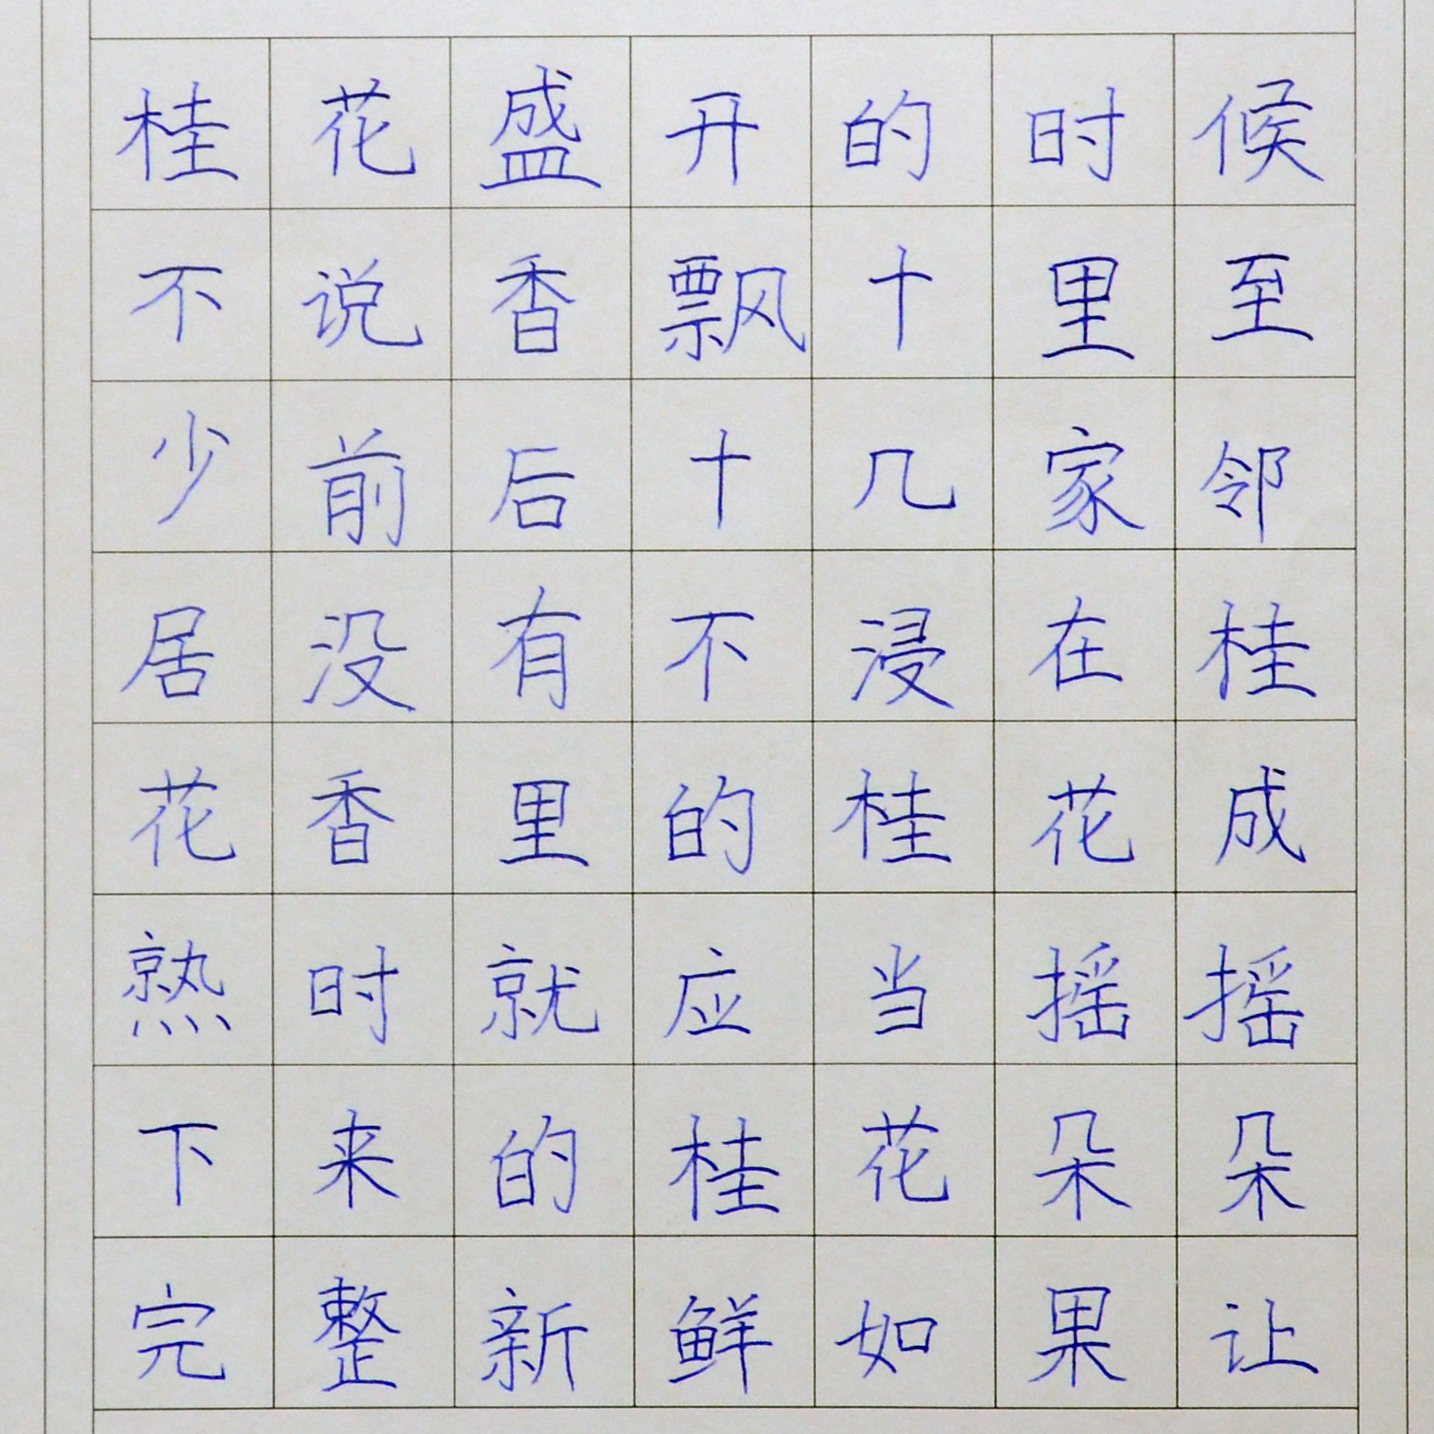 桂花盛开的时候
不说香飘十里至
少前后十几家邻
居没有不浸在桂
花香里的桂花成
熟时就应当摇摇
下来的桂花朵朵
完整新鲜如果让